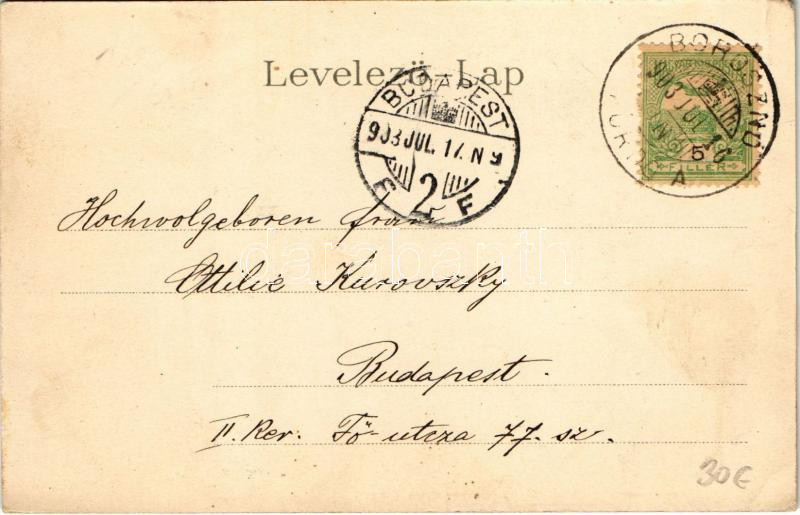 Levelező-Lap
BUDAPEST
903 JUL. 17. N 9
2
F F
BOROSZNÓ
903 JUL 16
5
FILLER
Hochwolgeboren frau
Ottilie Kurovszky
Budapest.
II. Ker. Fö-utcza 77. sz.
30€
darabanth